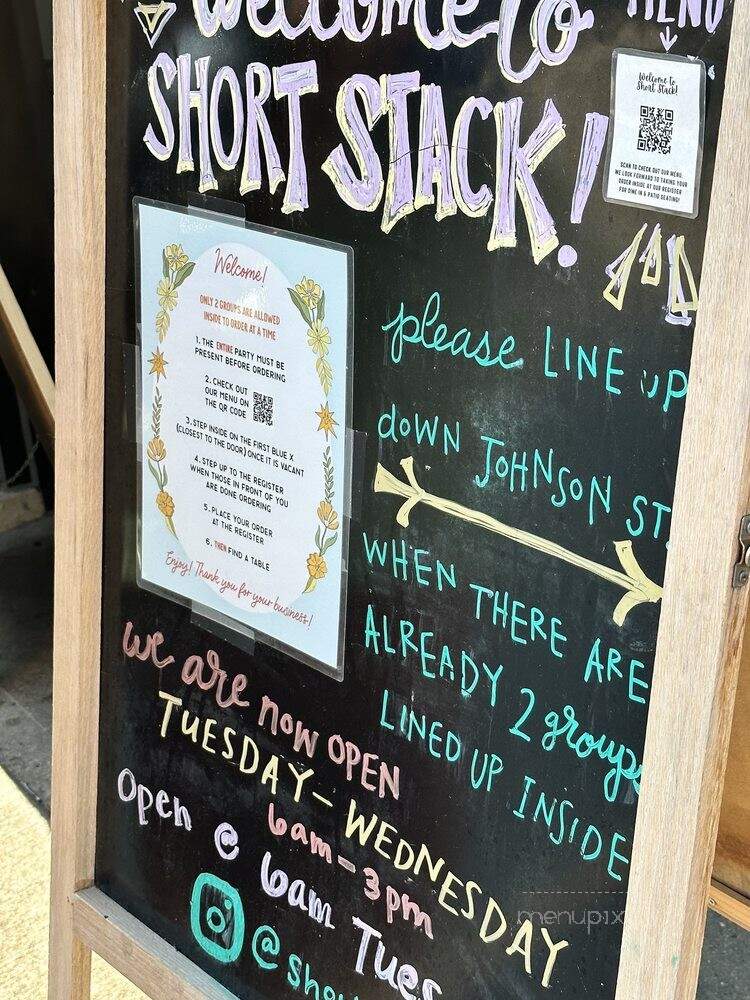 Welcome to
SHORT STACK!
MENU
Welcome to
Short Stack!
SCAN TO CHECK OUT OUR MENU.
WE LOOK FORWARD TO TAKING YOUR
ORDER AT OUR REGISTER
FOR DINE IN & PATIO SEATING!
Welcome!
ONLY 2 GROUPS ARE ALLOWED
INSIDE TO ORDER AT A TIME
1. THE ENTIRE PARTY MUST BE
PRESENT BEFORE ORDERING
2. CHECK OUT
OUR MENU ON
THE QR CODE
3. STEP INSIDE ON THE FIRST BLUE X
(CLOSEST TO THE DOOR) ONCE IT IS VACANT
4. STEP UP TO THE REGISTER
WHEN THOSE IN FRONT OF YOU
ARE DONE ORDERING
5. PLACE YOUR ORDER
AT THE REGISTER
6. THEN FIND A TABLE
Enjoy! Thank you for your business!
please LINE UP
down JOHNSON ST.
WHEN THERE ARE
ALREADY 2 groups
LINED UP INSIDE
we are now OPEN
TUESDAY - WEDNESDAY
6am - 3pm
Open @ 6am Tues
@ sho
menupix